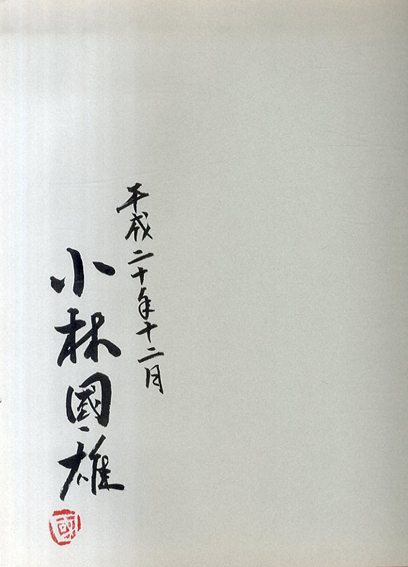 平成二十年十二月
小林國雄
國